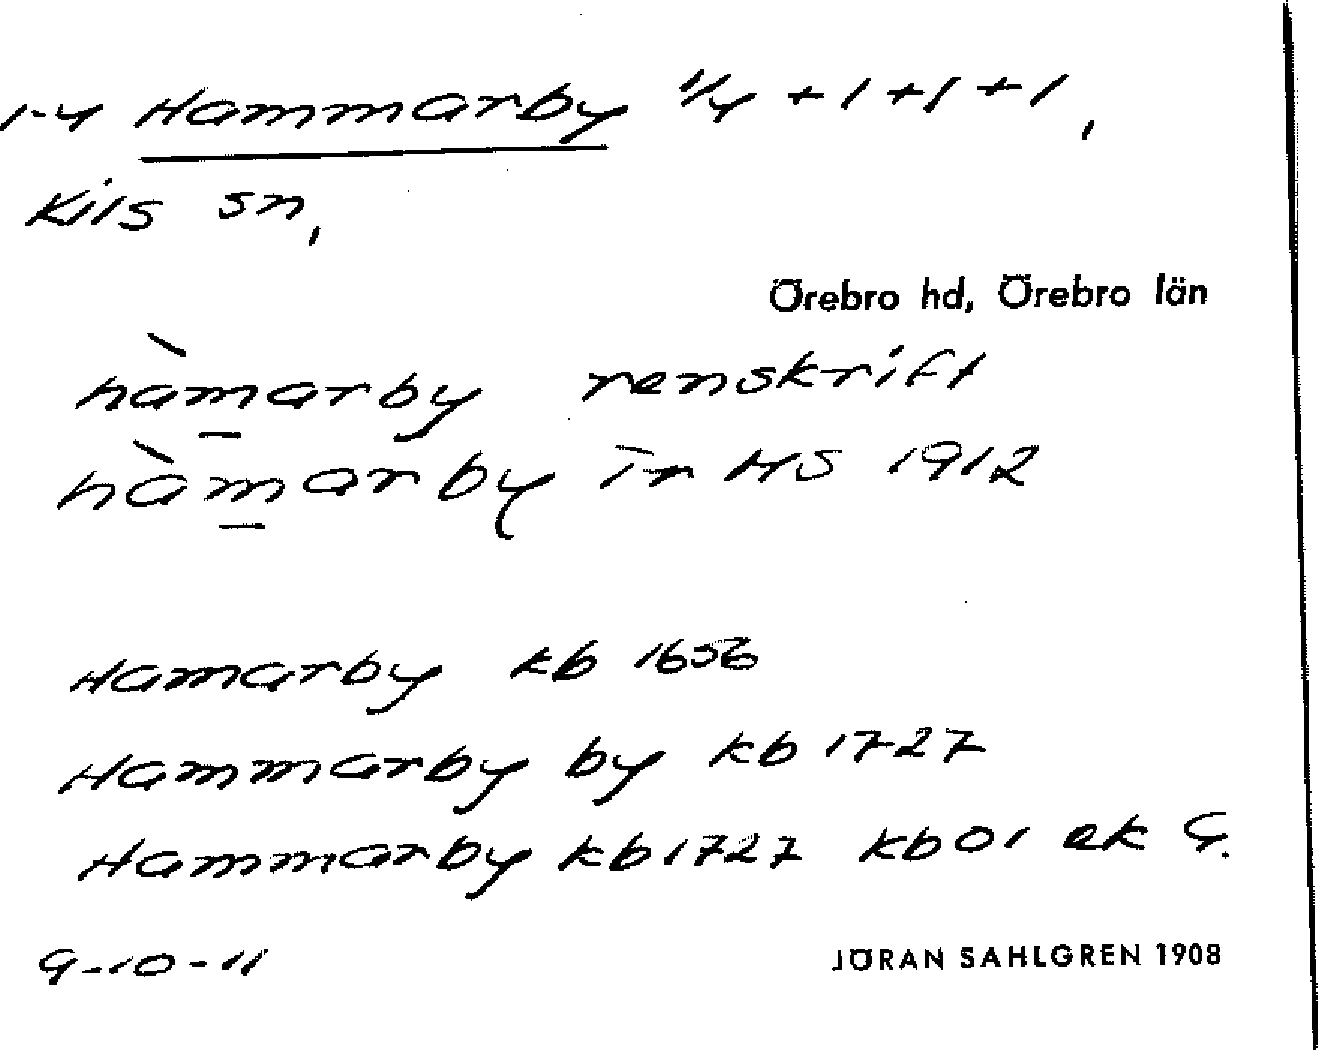 1-4 Hammarby 1/4 + 1 + 1 + 1,
Kils sn,
Örebro hd, Örebro län
hàmarby renskrift
hàmarby ïr HS 1912
Hamarby kb 1656
Hammarby by kb 1727
Hammarby kb 1727 kb 01 ek 9.
9-10-11
JÖRAN SAHLGREN 1908